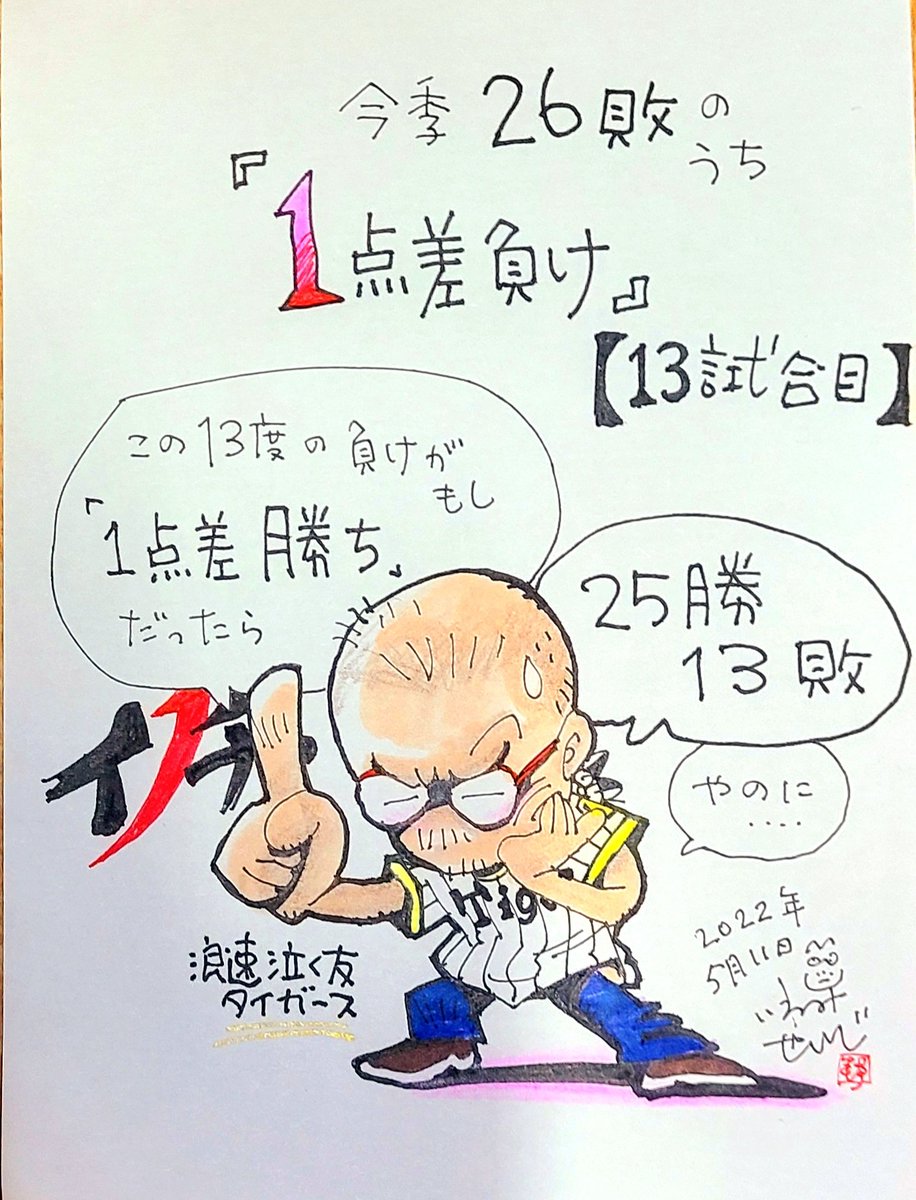 今季 26敗の
うち
『1点差負け』
【13試合目】
この13度の負けが
もし
「1点差勝ち」
だったら
25勝
13敗
やのに
‥‥
Tige
浪速泣く友
タイガース
2022年
5月11日
"いわみ
せいじ"